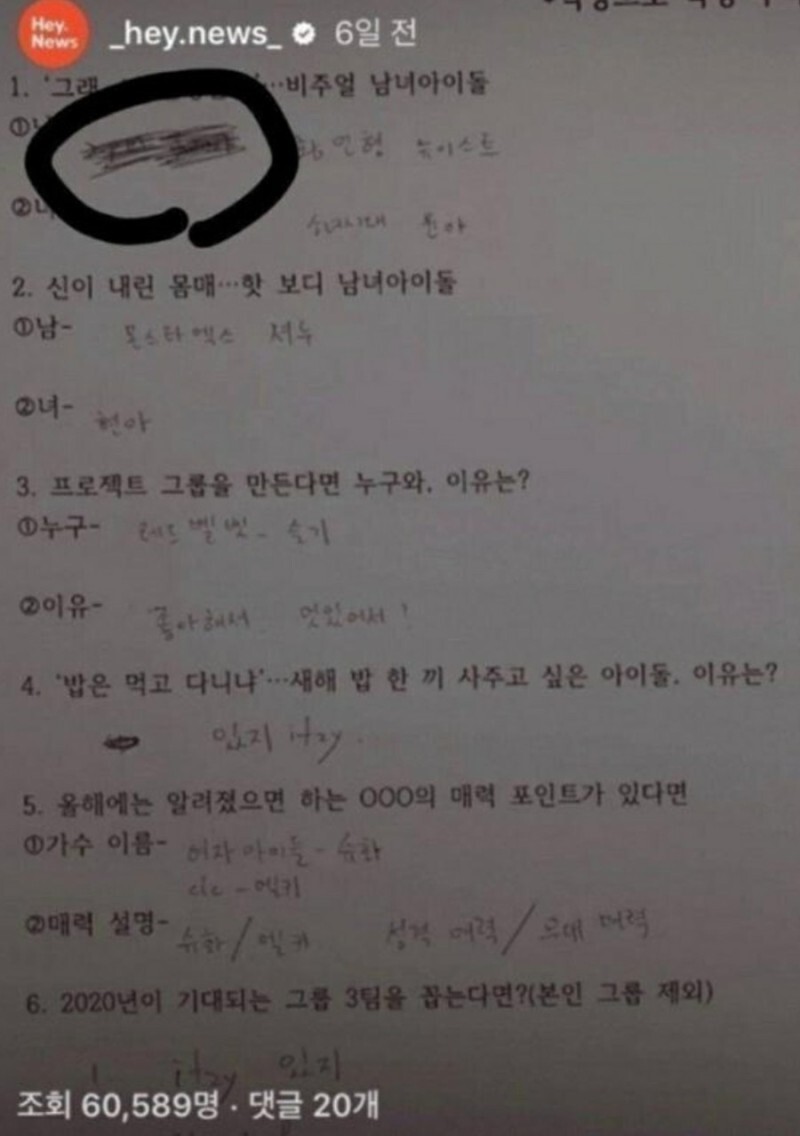 Hey.
News
_hey.news_ 6일 전
1. '그래 …비주얼 남녀아이돌
① 황민현 뉴이스트
② 소녀시대 윤아
2. 신이 내린 몸매…핫 보디 남녀아이돌
①남- 몬스타엑스 셔누
②녀- 현아
3. 프로젝트 그룹을 만든다면 누구와, 이유는?
①누구- 레드벨벳- 슬기
②이유- 좋아해서 멋있어서!
4. '밥은 먹고 다니냐'…새해 밥 한 끼 사주고 싶은 아이돌. 이유는?
있지 itzy.
5. 올해에는 알려졌으면 하는 OOO의 매력 포인트가 있다면
①가수 이름- 여자아이들 - 슈화
clc - 엘키
②매력 설명- 슈화/엘키 성격 매력/무대 매력
6. 2020년이 기대되는 그룹 3팀을 꼽는다면?(본인 그룹 제외)
1. itzy 있지
조회 60,589명 · 댓글 20개